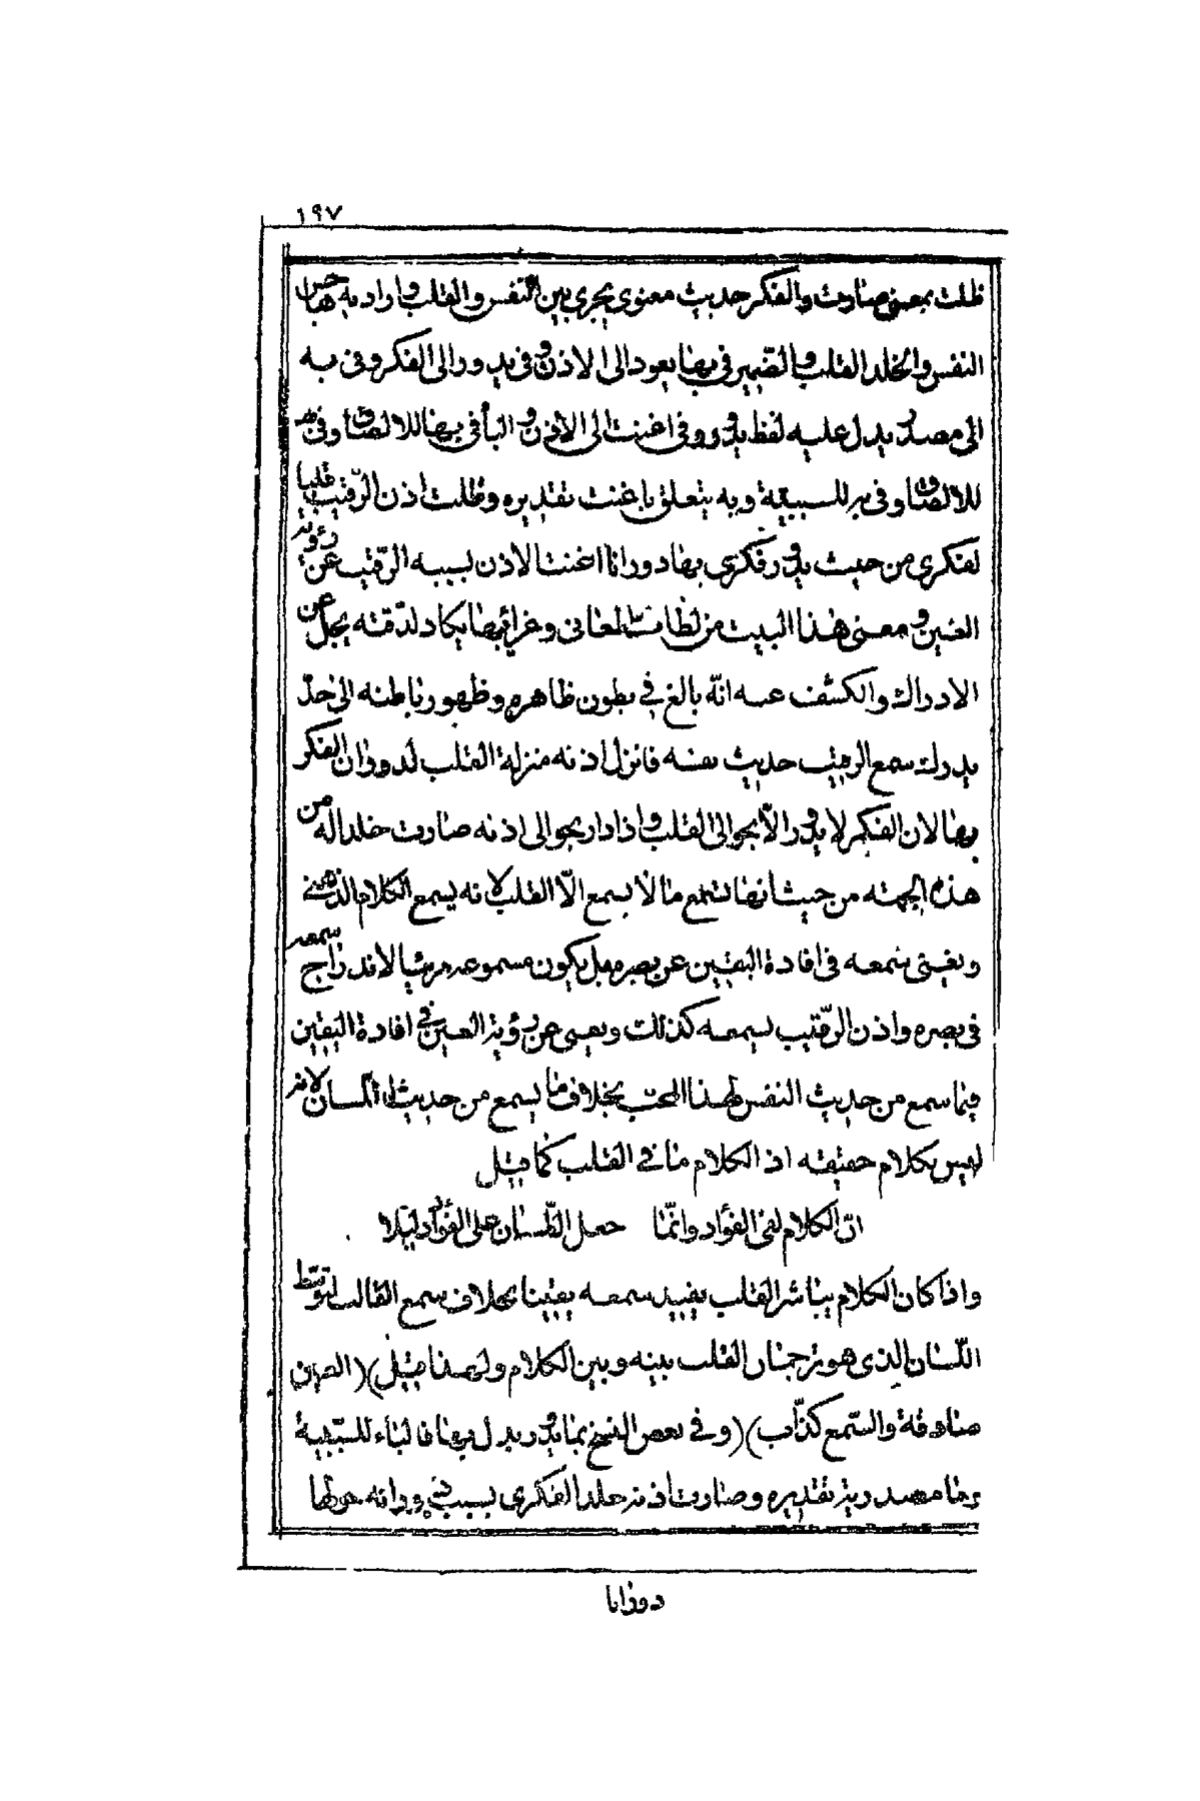 ١٩٧
ظلت بمعنى صارت والفكر حديث معنوى يجرى بين النفس والقلب واراد به هاجس
النفس والخلد القلب والضمير فى بها يعود الى الاذن وفى يدور الى الفكر وفى به
الى مصدر يدل عليه لفظ يدور وفى اغنت الى الاذن والبأ فى بها للالصاق وفى
للالصاق وفى به للسببية وبه يتعلق باغنت تقديره وظلت اذن الرّقيب قلبا
لفكرى من حيث يدور فكرى بها دورانا اغنت الاذن بسببه الرّقيب عن رؤية
العين ومعنى هذا البيت من لطائف المعانى وغرائبها يكاد لدقّته يجل عن
الادراك والكشف عنه انّه بالغ فى بطون ظاهره وظهور باطنه الى حدّ
يدرك سمع الرقيب حديث نفسه فانزل اذنه منزلة القلب لدوران الفكر
بها لان الفكر لا يدور الّا بحوالى القلب واذا دار بحوالى اذنه صارت خلدا له من
هذه الجهته من حيث انها تسمع ما لا يسمع الّا القلب لانه يسمع الكلام الذهنى
ويغنى سمعه فى افادة اليقين عن بصره بل يكون مسموعه مرئيا لاندراج سمعه
فى بصره واذن الرّقيب يسمعه كذلك ويغنى عن رؤية العين فى افادة اليقين
فيما سمع من حديث النفس لهذا المحبّ بخلاف ما يسمع من حديث اللسان لانه
ليس بكلام حقيقته اذ الكلام ما فى القلب كما قيل
انّ الكلام لفى الفؤاد وانّما جعل اللّسان على الفؤاد دليلا
واذا كان الكلام يباشر القلب يفييد سمعه يقينا بخلاف سمع القالب لتوسّط
اللّسان الذى هو ترجمان القلب بينه وبين الكلام ولهذا قيل)(العين
صادقة والسّمع كذّاب)(وفى بعض النسخ بما يدور بدل بها فالباء للسّببية
وما مصدرية تقديره وصارت اذنه خلدا لفكرى بسبب دورانه حولها
دورانا